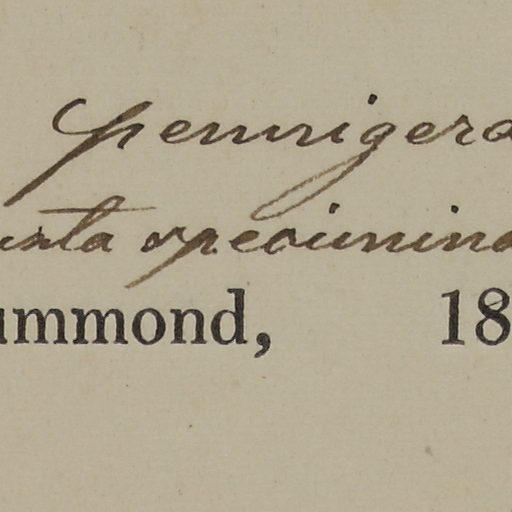 pennigera
usta specimina
ummond, 18